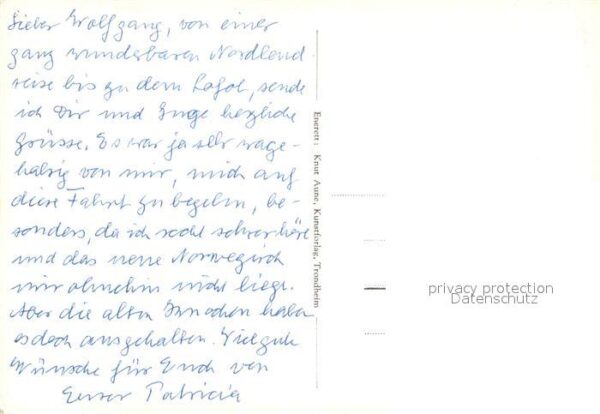 Lieber Wolfgang, von einer
ganz wunderbaren Nordland
reise bis zu dem Lofot, sende
ich Dir und Inge herzliche
Grüsse. Es war ja sehr wage-
halsig von mir, mich auf
diese Fahrt zu begeben, be-
sonders, da ich recht schwerhöre
und das neue Norwegisch
mir ohnehin nicht liegt.
Aber die alten Knochen haben
es doch ausgehalten. Viel gute
Wünsche für Euch von
Eurer Patricia
Enerett: Knut Aune, Kunstforlag, Trondheim
privacy protection
Datenschutz